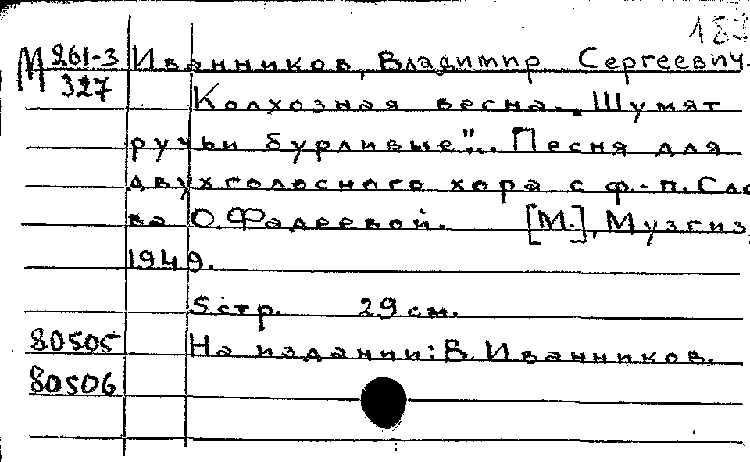 М 261-3 Иванников, Владимир Сергеевич.
327 Колхозная весна. „Шумят
ручьи бурливые"... Песня для
двухголосного хора с ф.-п. Сло
ва О. Фадеевой. [М.], Музгиз,
1949.
5 стр. 29 см.
80505 На издании: В. Иванников.
80506